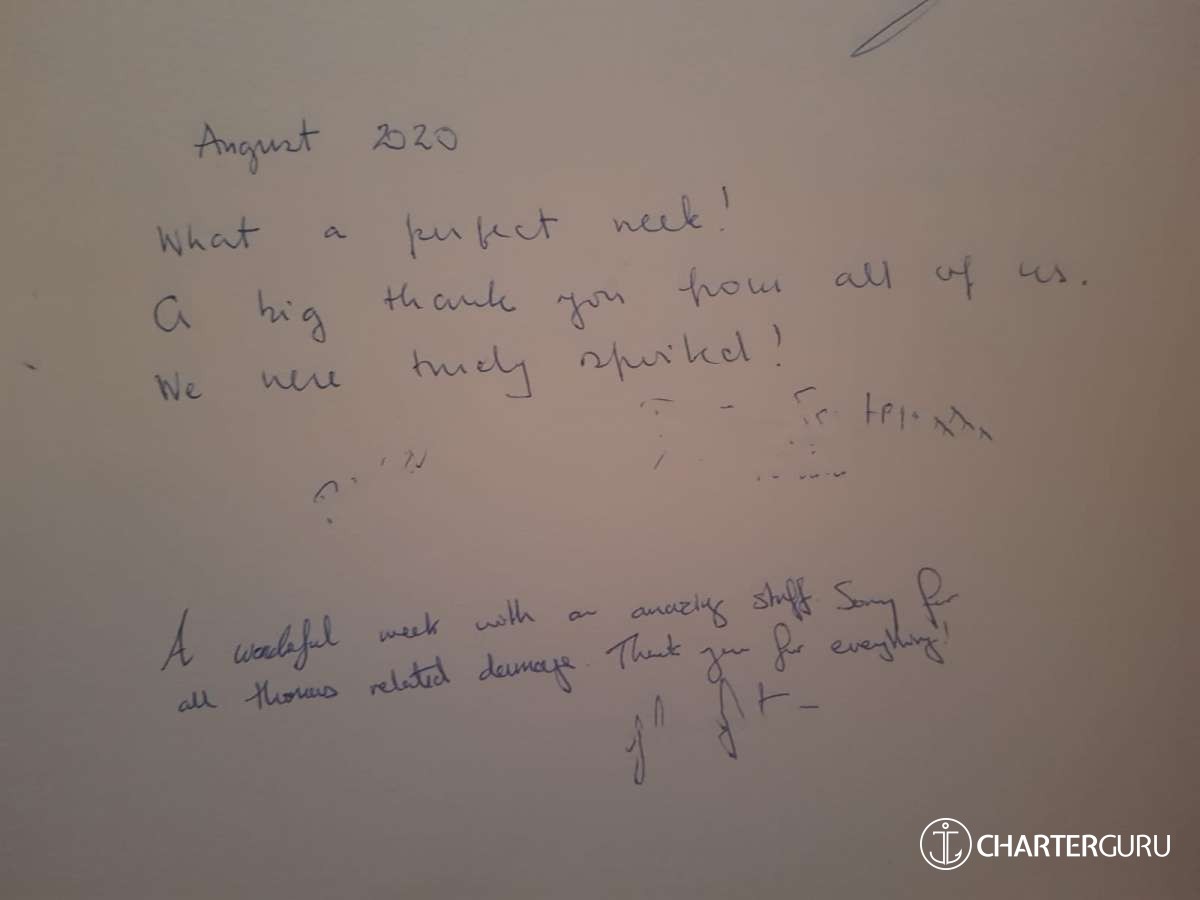 August 2020
What a perfect week!
A big thank you from all of us.
We were truly spoiled!
xxx
A wonderful week with an amazing staff. Sorry for
all thomas related damage. Thank you for everything!
CHARTERGURU